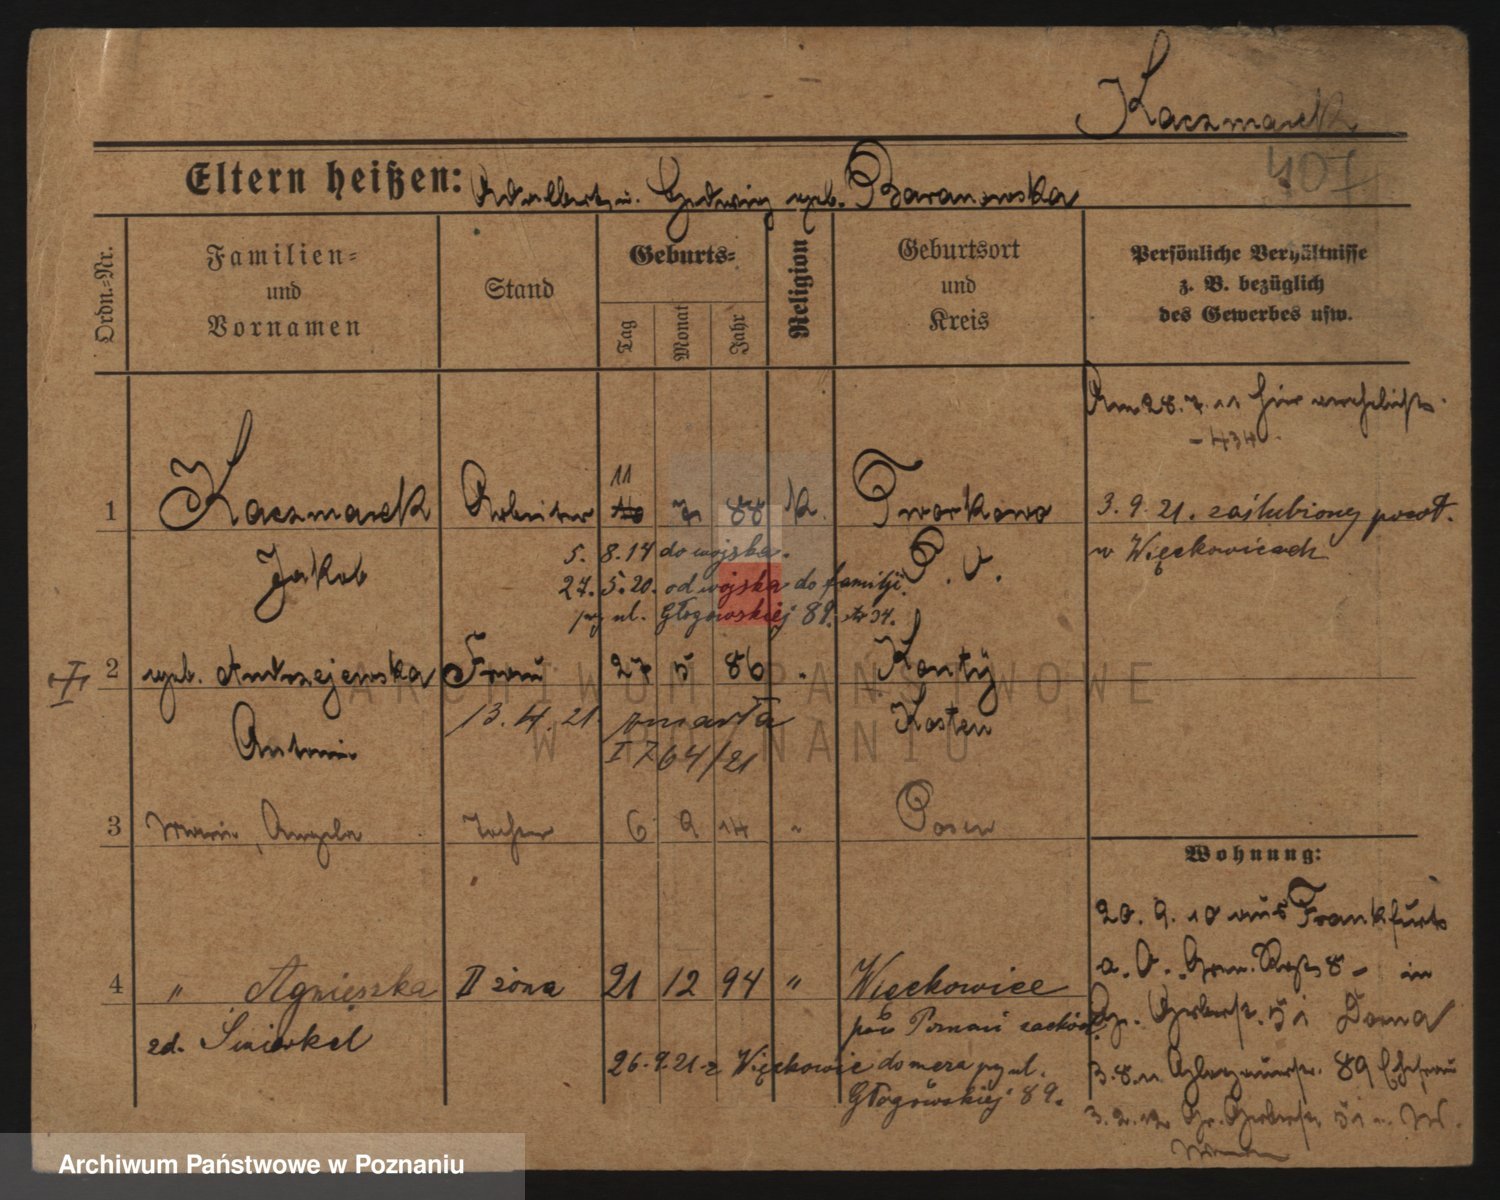 Kaczmarek
407
Eltern heißen: Adalbert u. Hedwig geb. Baranowska
Ordn.=Nr.
Familien= und Vornamen
Stand
Geburts=
Tag
Monat
Jahr
Religion
Geburtsort und Kreis
Persönliche Verhältnisse
z. B. bezüglich
des Gewerbes usw.
Am 28. 7. 11 hier verehelicht.
- 434 -
11
1 Kaczmarek Arbeiter 7 88 K. Tworkowo
3. 9. 21. zaślubiony powt.
w Więckowicach
Jakob
P. O.
5. 8. 14 do wojska.
27. 5. 20. od wojska do familji.
py ul. Głogowskiej 89. 34.
2 geb. Andrzejewska Frau 27 5 86 Konty
Antonie
13. 4. 21. zmarła
Kosten
I 764/21
3 Maria, Angela Tochter 6 9 14 " Posen
Wohnung:
20. 9. 10 aus Frankfurt
a. O. 8 - in
4 " Agnieszka II żona 21 12 94 " Więckowice
zd. Świerkel
pow Poznań zachód.
26. 9. 21 z Więckowic do męża py ul.
Głogowskiej 89.
3. 8. 11 Glogauerstr. 89 Ehefrau
3. 2. 12 Gr. Gerberstr. 51
ARCHIWUM PAŃSTWOWE
W POZNANIU
Archiwum Państwowe w Poznaniu